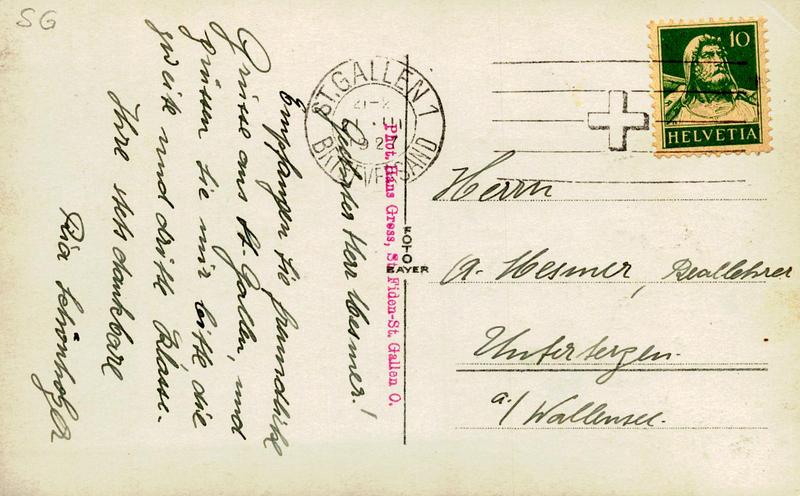 SG
Geehrter Herr Mesmer!
Empfangen Sie freundliche
Grüsse aus St. Gallen, und
grüssen Sie mir bitte die
zweite und dritte Klasse.
Ihre stets dankbare
Schönholzer
Phot. Hans Gross, St. Fiden-St. Gallen O.
FOTO
BAYER
ST. GALLEN 1
BRIEFVERSAND
10
HELVETIA
Herrn
A. Mesmer, Reallehrer
Unterterzen.
a./ Wallensee.